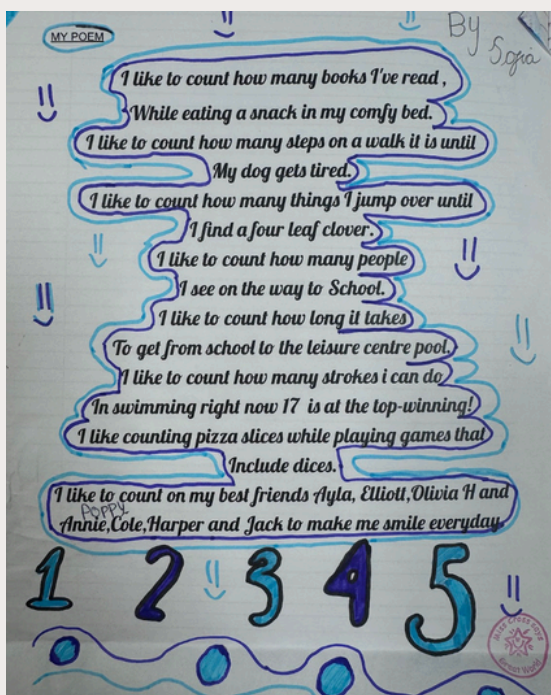 MY POEM
By Sofia
I like to count how many books I've read ,
While eating a snack in my comfy bed.
I like to count how many steps on a walk it is until
My dog gets tired.
I like to count how many things I jump over until
I find a four leaf clover.
I like to count how many people
I see on the way to School.
I like to count how long it takes
To get from school to the leisure centre pool.
I like to count how many strokes i can do
In swimming right now 17 is at the top-winning!
I like counting pizza slices while playing games that
Include dices.
I like to count on my best friends Ayla, Elliott,Olivia H and
Poppy
Annie,Cole,Harper and Jack to make me smile everyday.
1 2 3 4 5
Miss Cross says
Great Work!